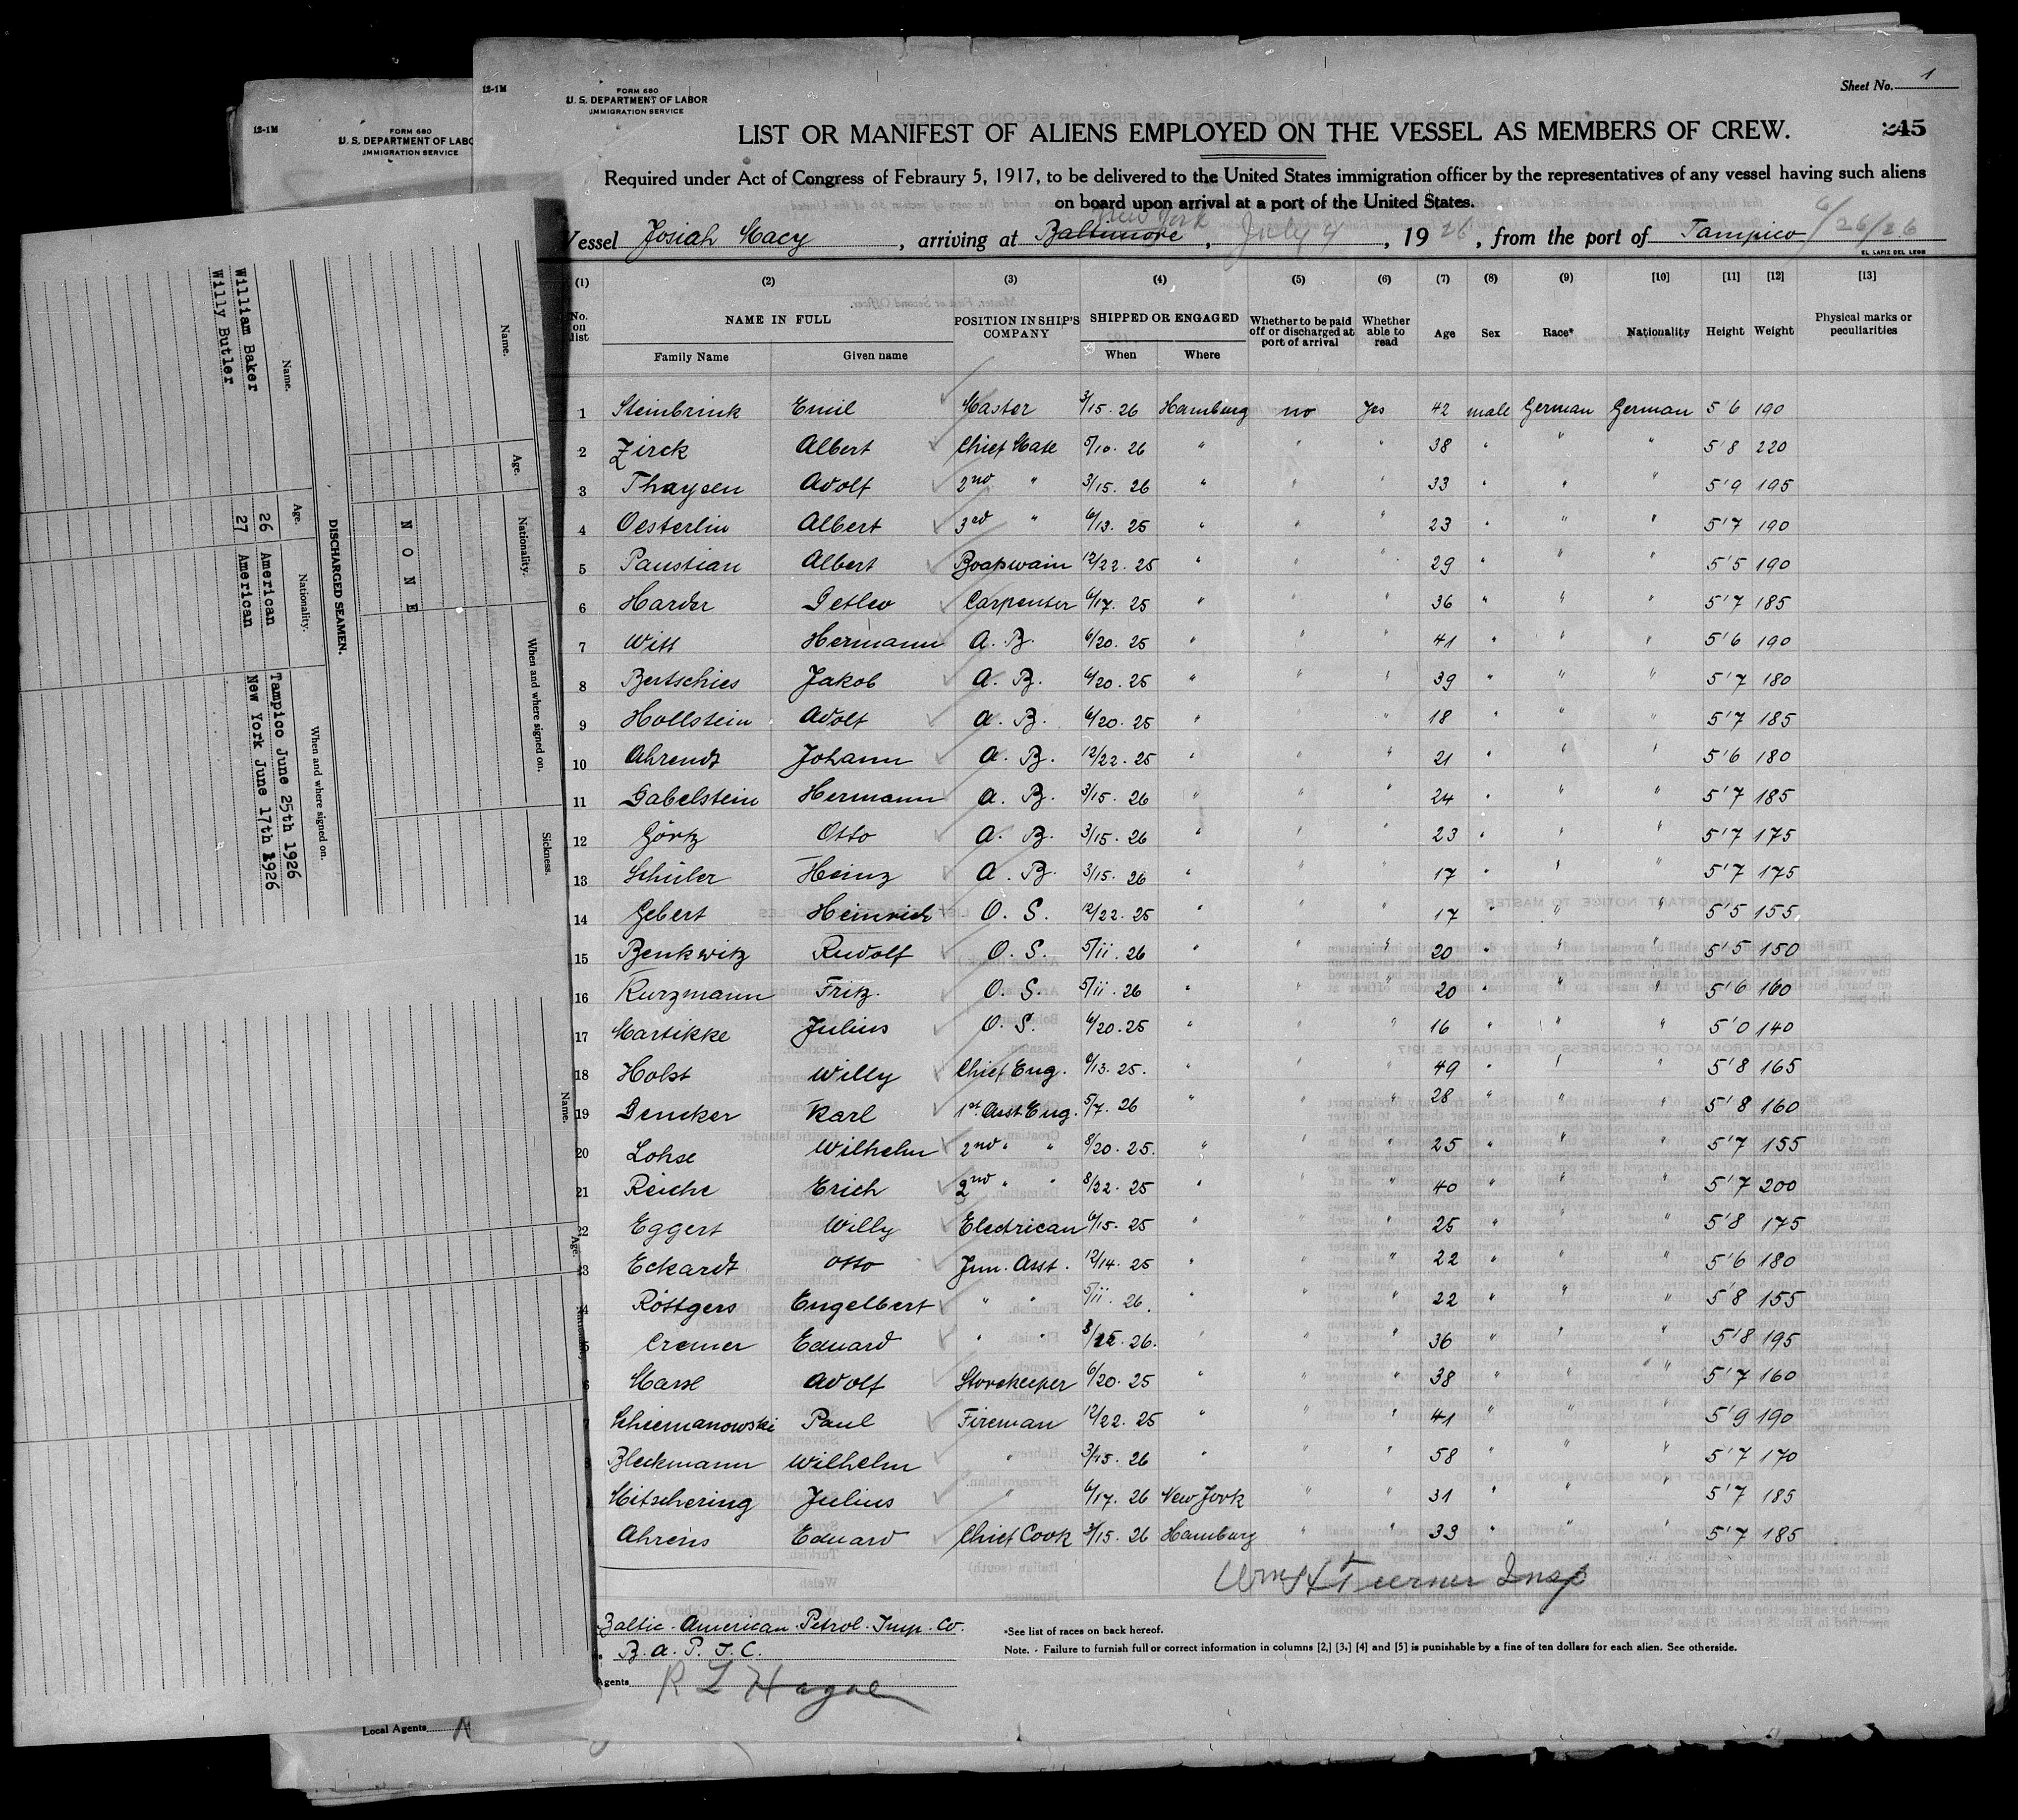 12-1M
FORM 680
U. S. DEPARTMENT OF LABOR
IMMIGRATION SERVICE
Sheet No. 1
LIST OR MANIFEST OF ALIENS EMPLOYED ON THE VESSEL AS MEMBERS OF CREW.
245
Required under Act of Congress of Febraury 5, 1917, to be delivered to the United States immigration officer by the representatives of any vessel having such aliens
on board upon arrival at a port of the United States.
New York
Vessel Josiah Macy, arriving at Baltimore, July 4, 1926, from the port of Tampico 6/26/26
EL LAPIZ DEL LEON
(1) (2) (3) (4) (5) (6) (7) (8) (9) [10] [11] [12] [13]
No. on list NAME IN FULL POSITION IN SHIP'S COMPANY SHIPPED OR ENGAGED Whether to be paid off or discharged at port of arrival Whether able to read Age Sex Race* Nationality Height Weight Physical marks or peculiarities
Family Name Given name When Where
1 Steinbrink Emil Master 3/15. 26 Hamburg no yes 42 male German German 5'6 190
2 Zirck Albert Chief Mate 5/10. 26 " " " 38 " " " 5'8 220
3 Thaysen Adolf 2nd " 3/15. 26 " " " 33 " " " 5'9 195
4 Oesterlin Albert 3rd " 6/13. 25 " " " 23 " " " 5'7 190
5 Paustian Albert Boatswain 12/22. 25 " " " 29 " " " 5'5 190
6 Harder Detlev Carpenter 6/17. 25 " " " 36 " " " 5'7 185
7 Witt Hermann A. B. 6/20. 25 " " " 41 " " " 5'6 190
8 Bertschies Jakob A. B. 6/20. 25 " " " 39 " " " 5'7 180
9 Hollstein Adolf A. B. 6/20. 25 " " " 18 " " " 5'7 185
10 Ahrendt Johann A. B. 12/22. 25 " " " 21 " " " 5'6 180
11 Gabelstein Hermann A. B. 3/15. 26 " " " 24 " " " 5'7 185
12 Görtz Otto A. B. 3/15. 26 " " " 23 " " " 5'7 175
13 Schüler Heinz A. B. 3/15. 26 " " " 17 " " " 5'7 175
14 Gebert Heinrich O. S. 12/22. 25 " " " 17 " " " 5'5 155
15 Benkwitz Rudolf O. S. 5/11. 26 " " " 20 " " " 5'5 150
16 Kurzmann Fritz. O. S. 5/11. 26 " " " 20 " " " 5'6 160
17 Martikke Julius O. S. 6/20. 25 " " " 16 " " " 5'0 140
18 Holst Willy Chief Eng. 6/13. 25. " " " 49 " " " 5'8 165
19 Dencker Karl 1st. Asst Eng. 5/7. 26 " " " 28 " " " 5'8 160
20 Lohse Wilhelm 2nd " " 8/20. 25. " " " 25 " " " 5'7 155
21 Reiche Erich 2nd " " 8/22. 25 " " " 40 " " " 5'7 200
22 Eggert Willy Electrican 6/15. 25 " " " 25 " " " 5'8 175
23 Eckardt Otto Jun. Asst. 12/14. 25 " " " 22 " " " 5'6 180
24 Röttgers Engelbert " " 5/11. 26. " " " 22 " " " 5'8 155
5 Cremer Eduard " " 26. " " " 36 " " " 5'8 195
6 Marse Adolf Storekeeper 6/20. 25 " " " 38 " " " 5'7 160
7 Schiemanowski Paul Fireman 12/22. 25 " " " 41 " " " 5'9 190
8 Bleckmann Wilhelm " 3/15. 26 " " " 58 " " " 5'7 170
Mitschering Julius " 6/17. 26 New York " " 31 " " " 5'7 185
Ahrens Eduard Chief Cook 3/15. 26 Hamburg " " 33 " " " 5'7 185
Wm H Turner Insp
Baltic. American. Petrol. Imp. Co.
B. A. P. I. C.
Agents R L Hague
*See list of races on back hereof.
Note. - Failure to furnish full or correct information in columns [2,] [3,] [4] and [5] is punishable by a fine of ten dollars for each alien. See otherside.
12-1M
FORM 680
U. S. DEPARTMENT OF LABO
IMMIGRATION SERVICE
Name. Age. Nationality. When and where signed on. Sickness.
NONE
DISCHARGED SEAMEN.
Name. Age. Nationality. When and where signed on.
William Baker 26 American Tampico June 25th 1926
Willy Butler 27 American New York June 17th 1926
Name. Age.
Local Agents